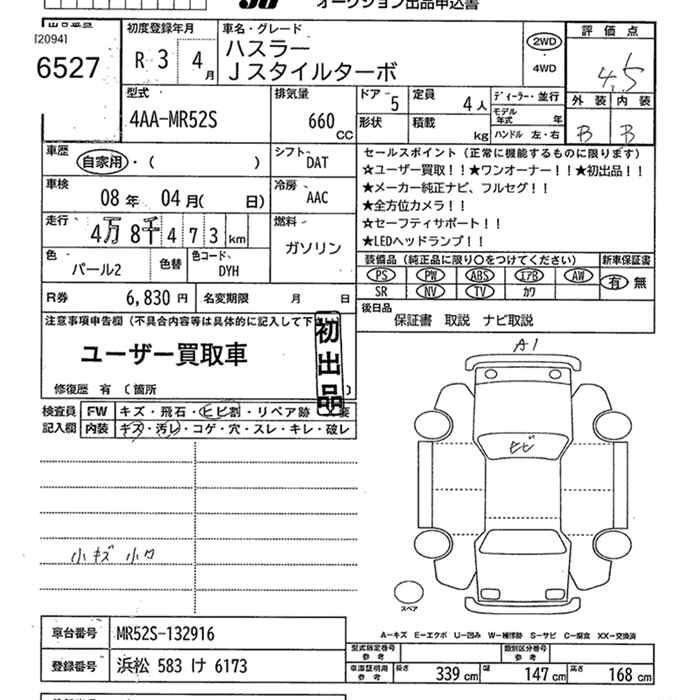 オークション出品申込書
出品番号
[2094]
6527
初度登録年月
R 3 4月
車名・グレード
ハスラー
Jスタイルターボ
2WD
4WD
評価点
4.5
外装 内装
B B
型式
4AA-MR52S
排気量
660
CC
ドア 5
定員 4人
ディーラー・並行
モデル年式 年
形状
積載 kg
ハンドル 左・右
車歴 自家用・( )
シフト DAT
車検 08年 04月( 日)
冷房 AAC
走行 4万 8千 4 7 3 km
燃料
ガソリン
色
パール2
色替
色コード
DYH
R券 6,830円
名変期限 月 日
セールスポイント(正常に機能するものに限ります)
☆ユーザー買取!!★ワンオーナー!!★初出品!!
★メーカー純正ナビ、フルセグ!!
★全方位カメラ!!
☆セーフティサポート!!
★LEDヘッドランプ!!
装備品(純正品に限り○をつけてください)
新車保証書
PS PW ABS エアB AW
有 無
SR NV TV カワ
後日品
保証書 取説 ナビ取説
注意事項申告欄(不具合内容等は具体的に記入して下
初出品
ユーザー買取車
修復歴 有 [箇所
検査員記入欄
FW キズ・飛石・ヒビ割・リペア跡
内装 キズ・汚レ・コゲ・穴・スレ・キレ・破レ
A1
ヒビ
小キズ
スペア
A-キズ E-エクボ U-凹み W-補修跡 S-サビ C-腐食 XX-交換済
車台番号 MR52S-132916
登録番号 浜松 583 け 6173
型式指定番号
参考
類別区分番号
参考
車庫証明用
参考
長さ 339cm 幅 147cm 高さ 168cm